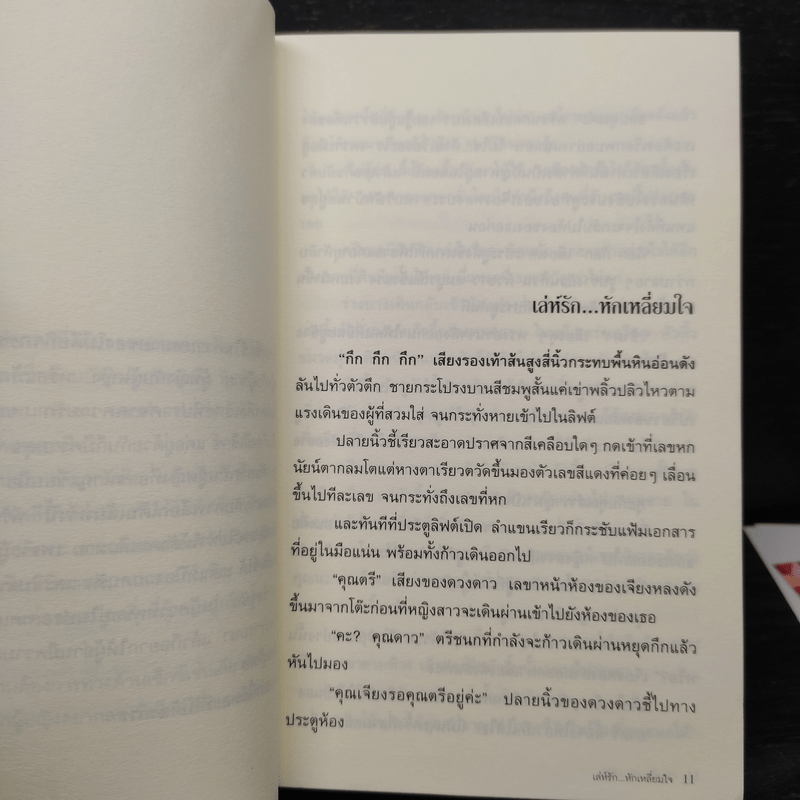 เล่ห์รัก...หักเหลี่ยมใจ
“กึก กึก กึก” เสียงรองเท้าส้นสูงสี่นิ้วกระทบพื้นหินอ่อนดัง
ลั่นไปทั่วตัวตึก ชายกระโปรงบานสีชมพูสั้นแค่เข่าพลิ้วปลิวไหวตาม
แรงเดินของผู้ที่สวมใส่ จนกระทั่งหายเข้าไปในลิฟต์
ปลายนิ้วชี้เรียวสะอาดปราศจากสีเคลือบใดๆ กดเข้าที่เลขหก
นัยน์ตากลมโตแต่หางตาเรียวตวัดขึ้นมองตัวเลขสีแดงที่ค่อยๆ เลื่อน
ขึ้นไปทีละเลข จนกระทั่งถึงเลขที่หก
และทันทีที่ประตูลิฟต์เปิด ลำแขนเรียวก็กระชับแฟ้มเอกสาร
ที่อยู่ในมือแน่น พร้อมทั้งก้าวเดินออกไป
“คุณตรี” เสียงของดวงดาว เลขาหน้าห้องของเจียงหลงดัง
ขึ้นมาจากโต๊ะก่อนที่หญิงสาวจะเดินผ่านเข้าไปยังห้องของเธอ
“คะ? คุณดาว” ตรีชนกที่กำลังจะก้าวเดินผ่านหยุดกึกแล้ว
หันไปมอง
“คุณเจียงรอคุณตรีอยู่ค่ะ” ปลายนิ้วของดวงดาวชี้ไปทาง
ประตูห้อง
เล่ห์รัก...หักเหลี่ยมใจ 11